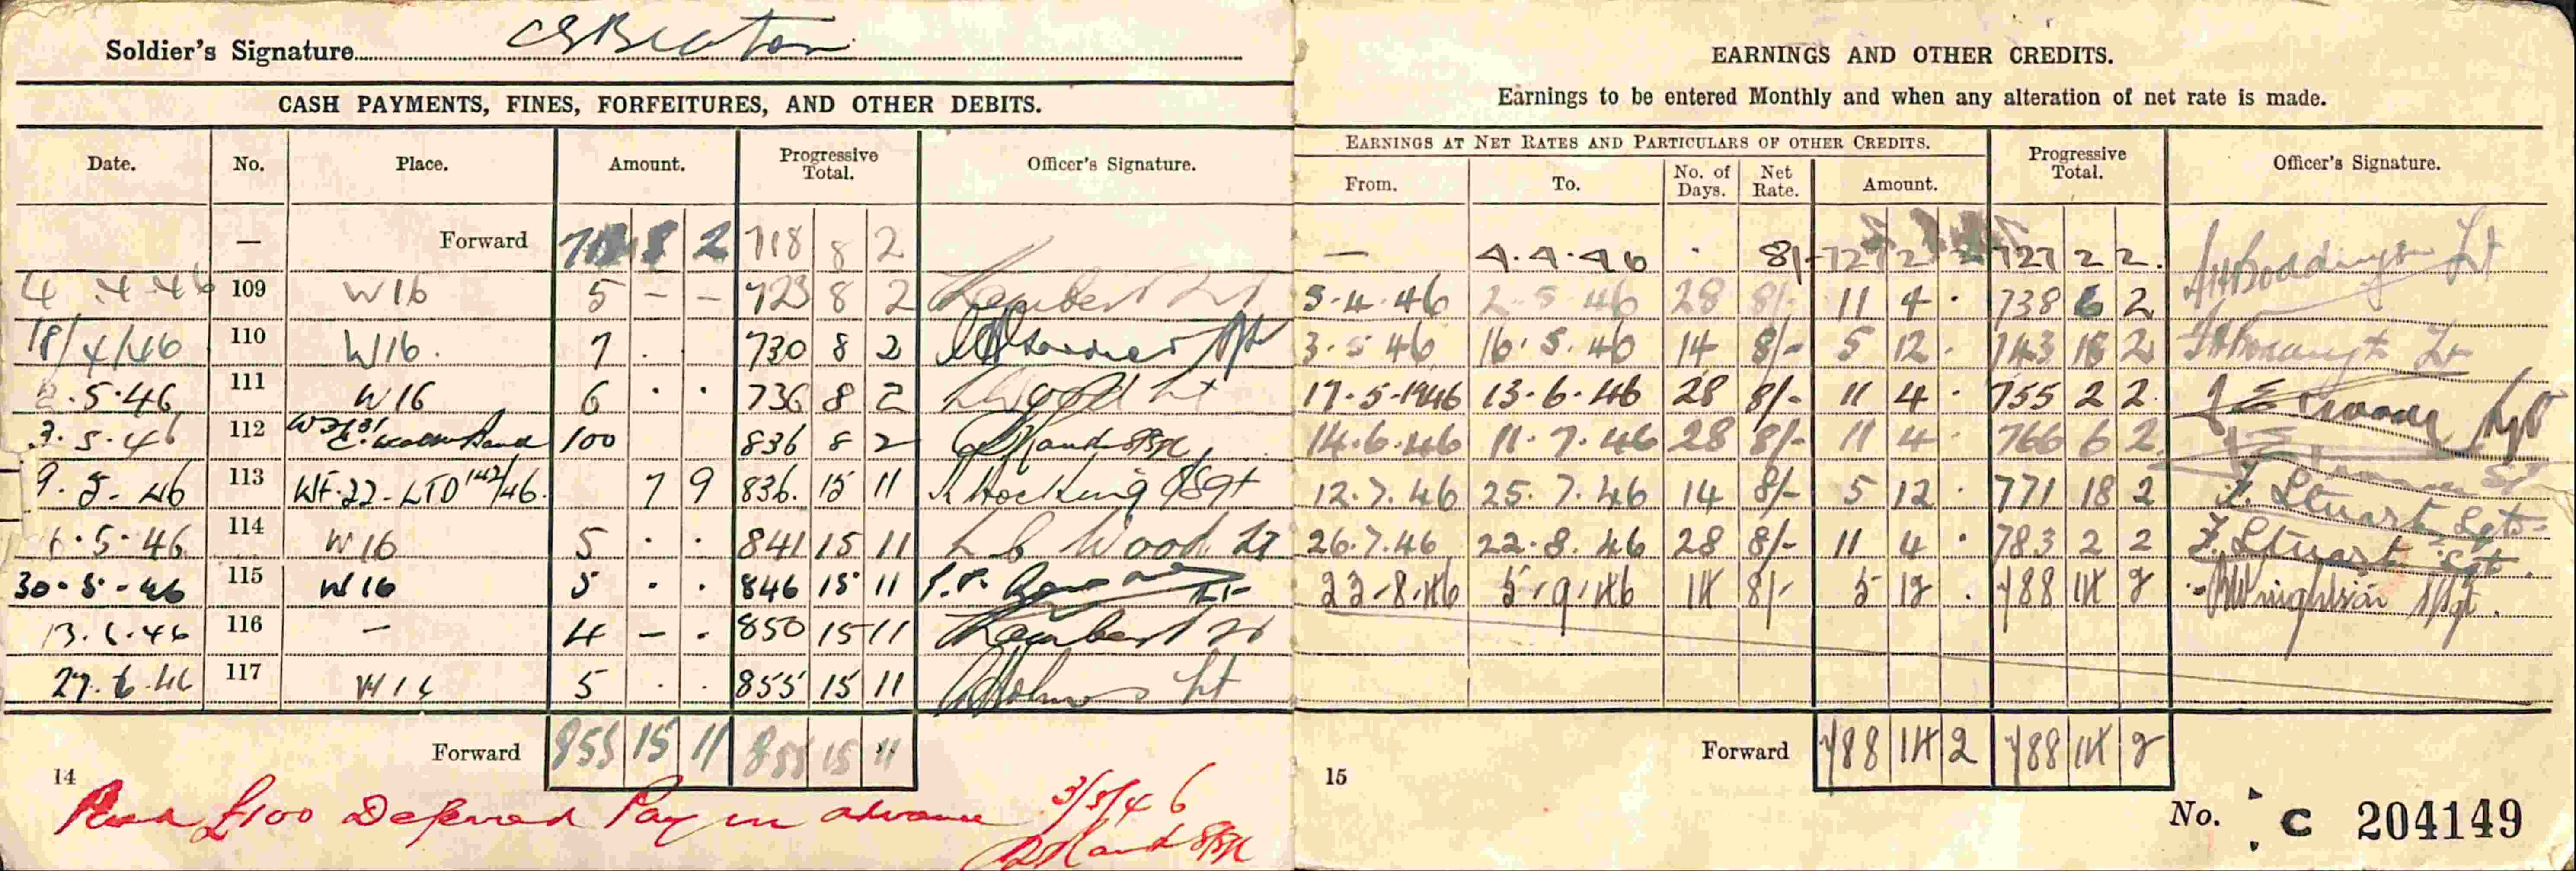 Soldier's Signature
CASH PAYMENTS, FINES, FORFEITURES, AND OTHER DEBITS.
Date. No. Place. Amount. Progressive Total. Officer's Signature.
— Forward 718 8 2 718 8 2
4.4.46 109 W16 5 – – 723 8 2 Lambert Lt
18/4/46 110 W16. 7 . 730 8 2
2.5.46 111 W16 6 . . 736 8 2 L Wood Lt
3.5.46 112 100 836 8 2
9.5.46 113 WF.22-LTD 142/46. 7 9 836. 15 11 Hocking S/Sgt
5.46 114 W16 5 . . 841 15 11 L C Wood Lt
30.5.46 115 W16 5 . . 846 15 11
13.6.46 116 – 4 – . 850 15 11 Lambert Lt
27.6.46 117 W16 5 . . 855 15 11 Holmes Lt
Forward 855 15 11 855 15 11
14
Paid £100 Deferred Pay in advance 3/5/46
EARNINGS AND OTHER CREDITS.
Earnings to be entered Monthly and when any alteration of net rate is made.
EARNINGS AT NET RATES AND PARTICULARS OF OTHER CREDITS. Progressive Total. Officer's Signature.
From. To. No. of Days. Net Rate. Amount.
— 4.4.46 . 8/- 727 2 2 727 2 2. Lt
5.4.46 2.5.46 28 8/- 11 4 . 738 6 2
3.5.46 16.5.46 14 8/- 5 12 . 743 18 2 Lt
17.5.1946 13.6.46 28 8/- 11 4 . 755 2 2
14.6.46 11.7.46 28 8/- 11 4 . 766 6 2
12.7.46 25.7.46 14 8/- 5 12 . 771 18 2 F. Stuart Sgt
26.7.46 22.8.46 28 8/- 11 4 . 783 2 2 F. Stuart Sgt.
23-8-46 5.9.46 14 8/- 5 12 . 788 14 2 S/Sgt.
Forward 788 14 2 788 14 2
15
No. C 204149